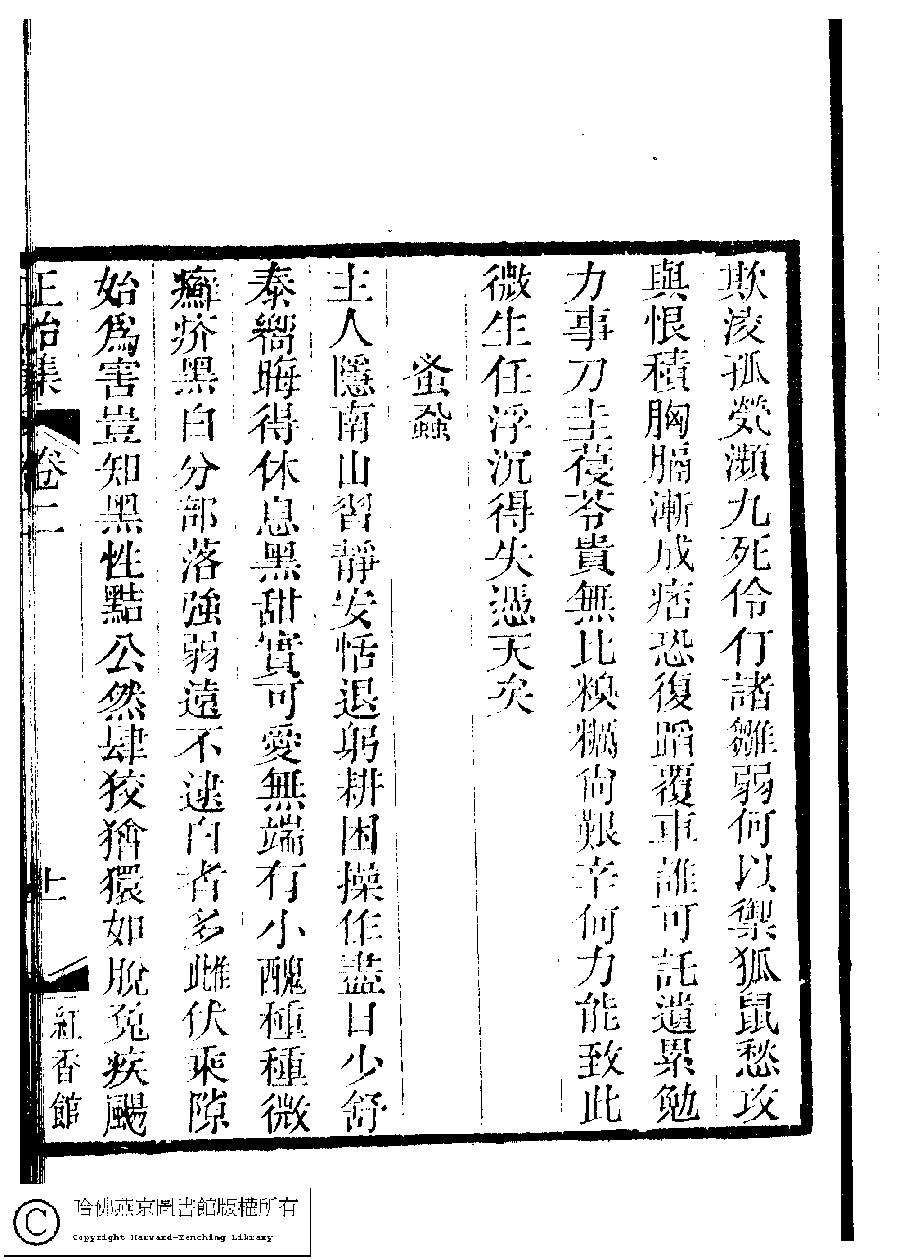 欺凌孤煢瀕九死伶仃諸雛弱何以禦狐鼠愁攻
與恨積胸膈漸成痞恐復蹈覆車誰可託遺累勉
力事刀圭葠苓貴無比糗糒尙艱辛何力能致此
微生任浮沉得失憑天矣
蚤蝨
主人隱南山習靜安恬退躬耕困操作盡日少舒
泰嚮晦得休息黑甜實可愛無端有小醜種種微
癬疥黑白分部落強弱遠不逮白者多雌伏乘隙
始爲害豈知黑性黠公然肆狡獪獧如脫兔疾颺
正始集
卷二
十一
紅香館
哈佛燕京圖書館版權所有
Copyright Harvard-Yenching Library